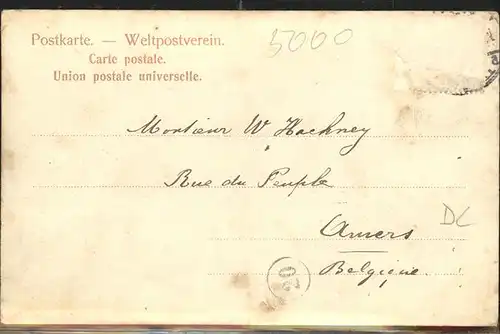 Postkarte. — Weltpostverein.
5000
Carte postale.
Union postale universelle.
Monsieur W Hackney
Rue du Peuple
DC
Anvers
Belgique.